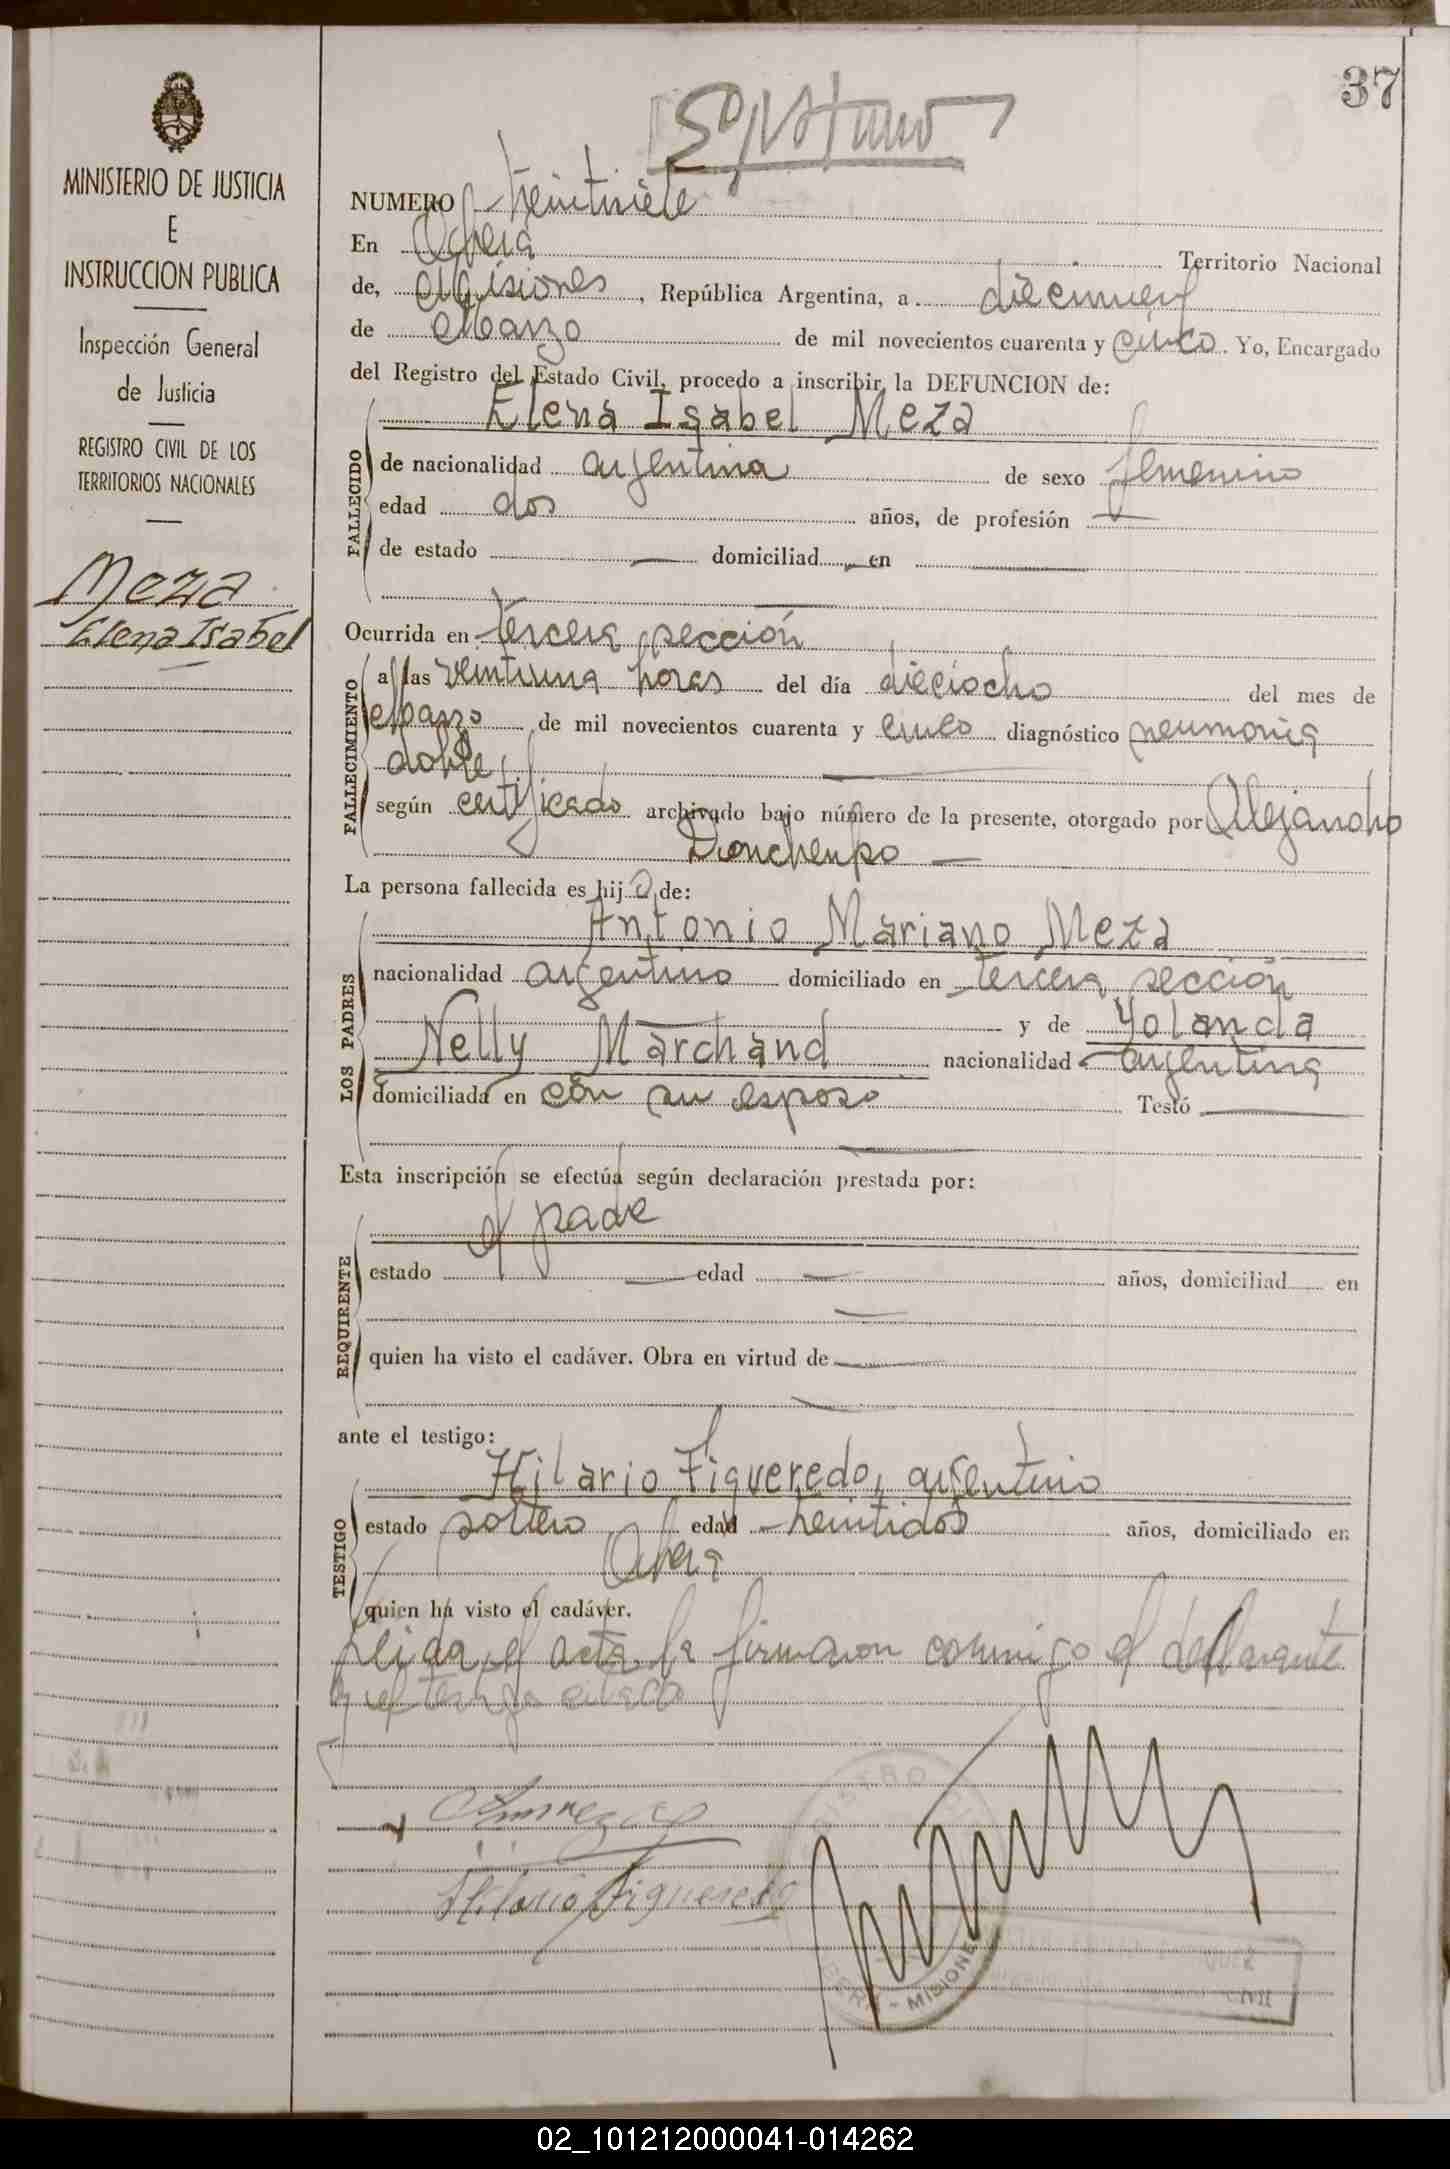 37
MINISTERIO DE JUSTICIA
E
INSTRUCCION PUBLICA
Inspección General
de Justicia
REGISTRO CIVIL DE LOS
TERRITORIOS NACIONALES
Meza
Elena Isabel
NUMERO treintisiete
En Obera Territorio Nacional
de, Misiones, República Argentina, a diecinueve
de Marzo de mil novecientos cuarenta y cinco. Yo, Encargado
del Registro del Estado Civil, procedo a inscribir la DEFUNCION de:
Elena Isabel Meza
FALLECIDO
de nacionalidad argentina de sexo femenino
edad dos años, de profesión —
de estado — domiciliad en —
Ocurrida en tercera sección
FALLECIMIENTO
a las veintiuna horas del día dieciocho del mes de
Marzo de mil novecientos cuarenta y cinco diagnóstico neumonia
doble —
según certificado archivado bajo número de la presente, otorgado por Alejandro
—
La persona fallecida es hija de:
LOS PADRES
Antonio Mariano Meza
nacionalidad argentino domiciliado en tercera sección
— y de Yolanda
Nelly Marchand nacionalidad argentina
domiciliada en con su esposo Testó —
Esta inscripción se efectúa según declaración prestada por:
REQUIRENTE
el padre
estado — edad — años, domiciliad en
—
quien ha visto el cadáver. Obra en virtud de —
—
ante el testigo:
TESTIGO
Hilario Figueredo, argentino
estado soltero edad treintidos años, domiciliado en
Obera
quien ha visto el cadáver.
Leida el acta la firmaron conmigo el declarante
y el testigo citado
Hilario Figueredo
- MISIONES
02_101212000041-014262